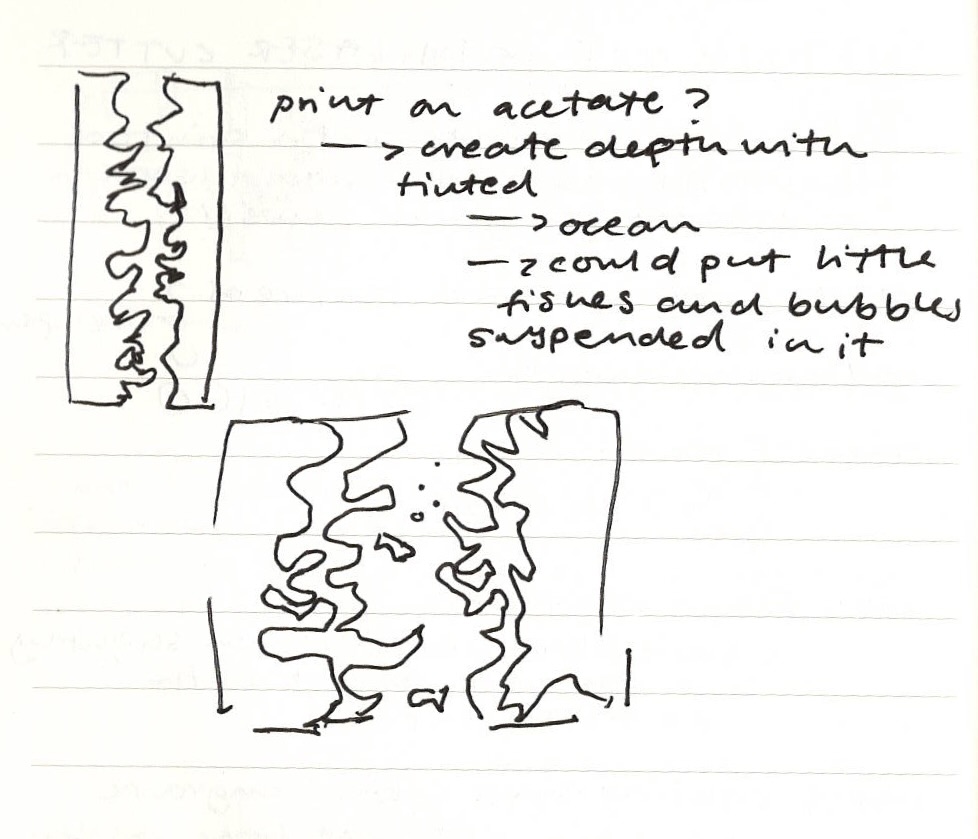 print on acetate?
—> create depth with
tinted
—> ocean
—> could put little
fishes and bubbles
suspended in it